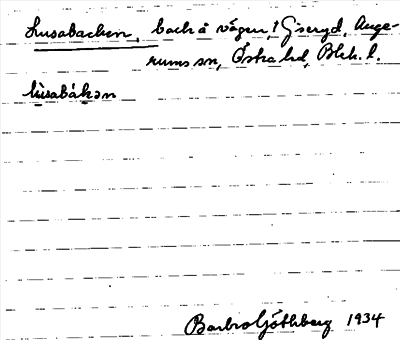 Lusabacken, backe å vägen, Giseryd, Auge-
rums sn, Östra hd, Blek. l.
lùsabákən
Barbro Göthberg 1934